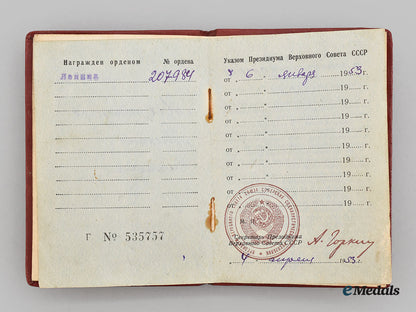 Награжден орденом № ордена
Ленина 207984
Г № 535757
Указом Президиума Верховного Совета СССР
от 6 января 1953 г.
от " 19 г.
от " 19 г.
от " 19 г.
от " 19 г.
от " 19 г.
от " 19 г.
от " 19 г.
от 19
М. П.
Секретарь Президиума
Верховного Совета СССР
А. Горкин
4 апреля 1953 г.
eMedals